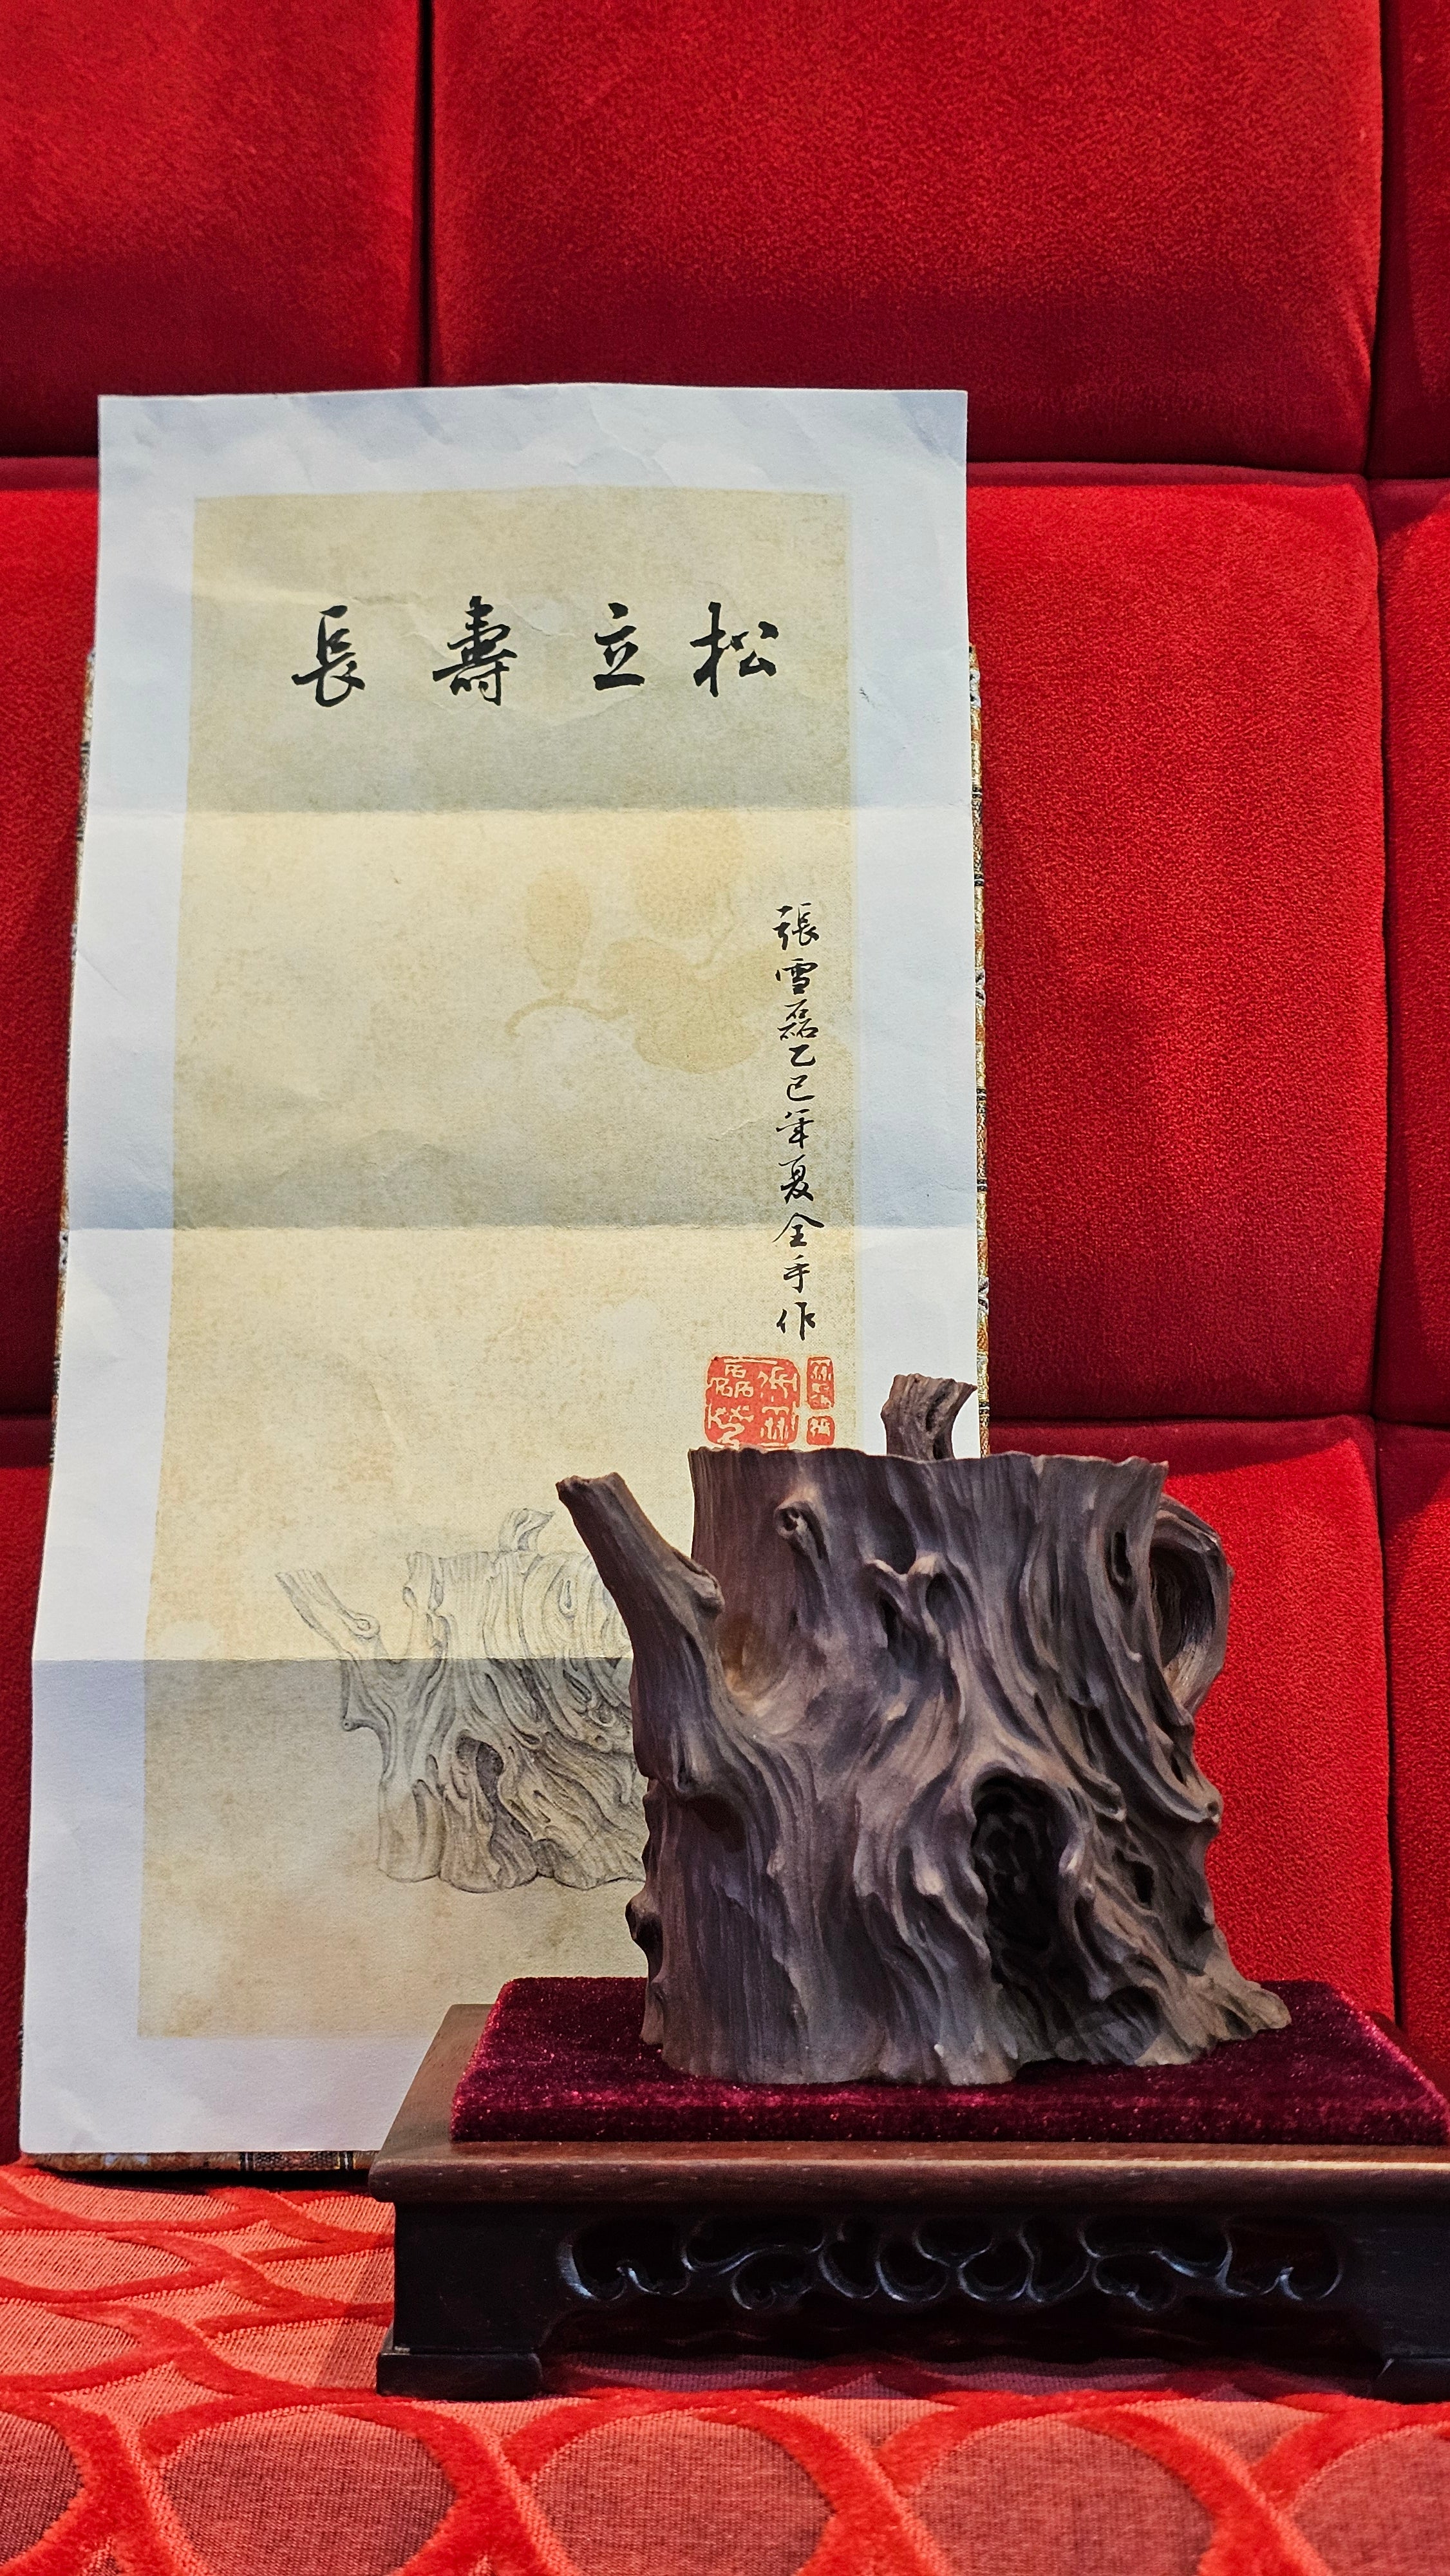 松立壽長
張雪磊乙巳年夏全手作